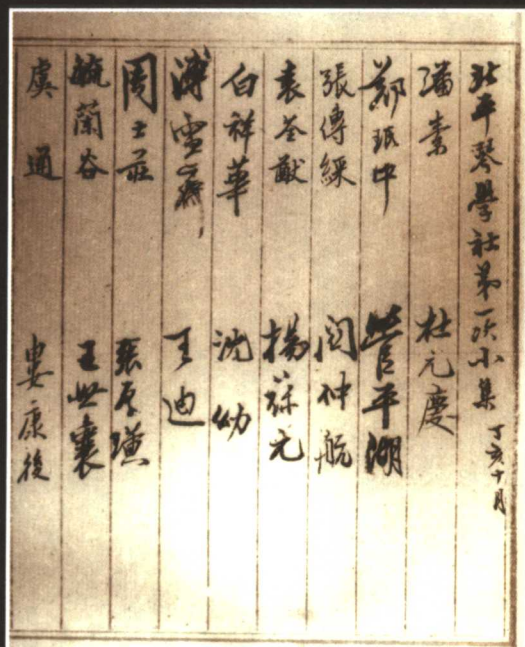 北平琴學社第一次小集 丁亥十月
潘素 杜元慶
鄭珉中 管平湖
張傳綵 關仲航
袁荃猷 楊葆元
白祥華 沈幼
溥雪齋 王迪
周士莊 張厚璜
毓蘭谷 王世襄
虞通 婁康後